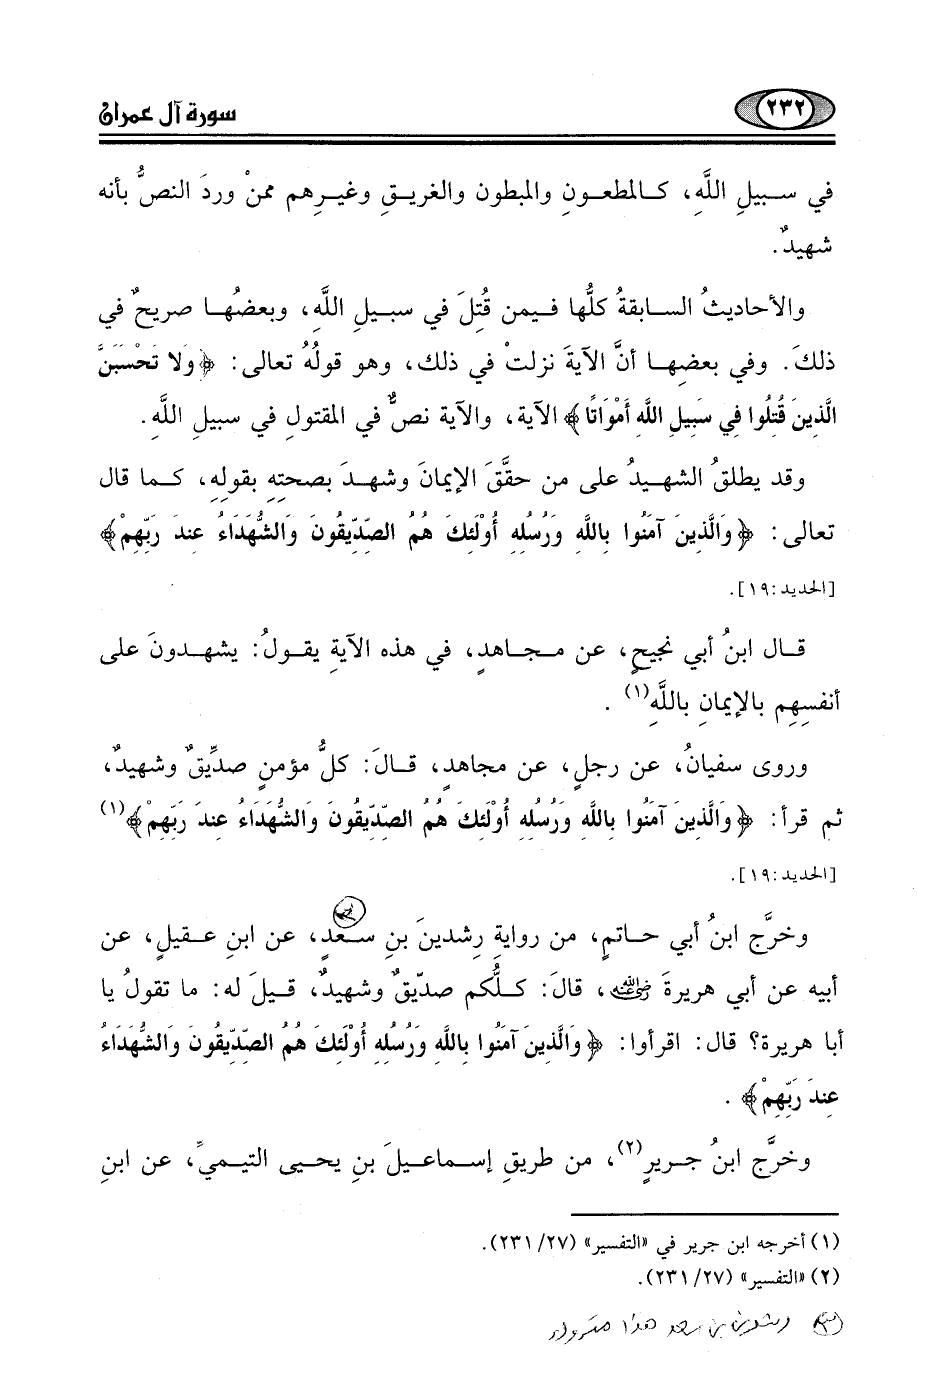 سورة آل عمران
٢٣٢
في سبيلِ اللَّهِ، كالمطعونِ والمبطون والغريقِ وغيرِهم ممنْ وردَ النصُّ بأنه
شهيدٌ.
والأحاديثُ السابقةُ كلُّها فيمن قُتِلَ في سبيلِ اللَّهِ، وبعضُها صريحٌ في
ذلكَ. وفي بعضِها أنَّ الآيةَ نزلتْ في ذلك، وهو قولُهُ تعالى: ﴿وَلا تَحْسَبَنَّ
الَّذِينَ قُتِلُوا فِي سَبِيلِ اللَّهِ أَمْوَاتًا﴾ الآية، والآية نصٌّ في المقتولِ في سبيلِ اللَّهِ.
وقد يطلقُ الشهيدُ على من حقَّقَ الإيمانَ وشهدَ بصحتِهِ بقولِهِ، كما قال
تعالى: ﴿وَالَّذِينَ آمَنُوا بِاللَّهِ وَرُسُلِهِ أُوْلَئِكَ هُمُ الصِّدِّيقُونَ وَالشُّهَدَاءُ عِندَ رَبِّهِمْ﴾
[الحديد:١٩].
قال ابنُ أبي نجيحٍ، عن مجاهدٍ، في هذه الآيةِ يقولُ: يشهدونَ على
أنفسِهِم بالإيمانِ باللَّهِ(١) .
وروى سفيانُ، عن رجلٍ، عن مجاهدٍ، قالَ: كلُّ مؤمنٍ صدِّيقٌ وشهيدٌ،
ثم قرأ: ﴿وَالَّذِينَ آمَنُوا بِاللَّهِ وَرُسُلِهِ أُوْلَئِكَ هُمُ الصِّدِّيقُونَ وَالشُّهَدَاءُ عِندَ رَبِّهِمْ﴾(١)
[الحديد:١٩].
وخرَّج ابنُ أبي حاتمٍ، من روايةِ رشدينَ بنِ سعدٍ، عن ابنِ عقيلٍ، عن
أبيه عن أبي هريرةَ رضي الله عنه، قالَ: كلُّكم صدّيقٌ وشهيدٌ، قيلَ له: ما تقولُ يا
أبا هريرة؟ قال: اقرأوا: ﴿وَالَّذِينَ آمَنُوا بِاللَّهِ وَرُسُلِهِ أُوْلَئِكَ هُمُ الصِّدِّيقُونَ وَالشُّهَدَاءُ
عِندَ رَبِّهِمْ﴾ .
وخرَّج ابنُ جريرٍ(٢)، من طريقِ إسماعيلَ بنِ يحيى التيميِّ، عن ابنِ
(١) أخرجه ابن جرير في «التفسير» (٢٣١/٢٧).
(٢) «التفسير» (٢٣١/٢٧).
رشدين بن سعد هذا متروك